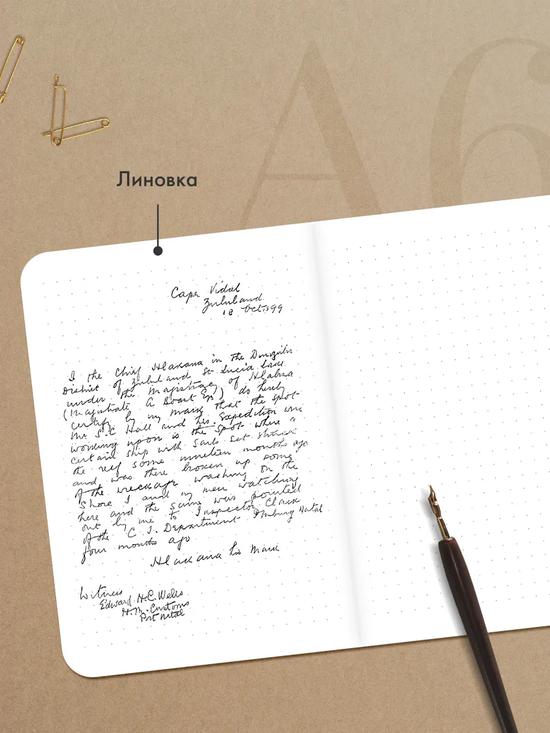 A6
Линовка
Cape Vidal
Zululand
18 Oct. 99
I the Chief Hlawana in the
District of Zululand St Lucia Lake
under the Magistracy of Hlabisa
(Magistrate A Boast Esq) do hereby
certify by my mark that the spot
Mr S.C. Hall and his Expedition are
working upon is the spot where a
certain ship with Sails set struck
the reef some nineteen months ago
and was there broken up some
of the wreckage washing on the
Shore I and my men watching
here and the same was pointed
out by me to Inspector Clark
of the C I. Department Natal
four months ago
his mark
Witness
Edward H.C. Wells
H.M. Customs
Port Natal